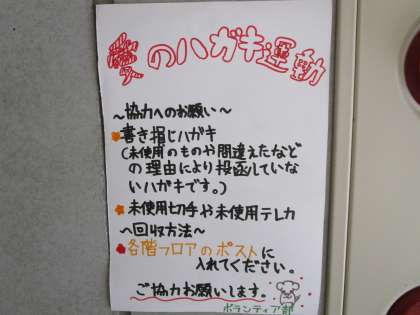 愛のハガキ運動
～協力へのお願い～
書き損じハガキ
(未使用のものや間違えたなど
の理由により投函していな
いハガキです。)
未使用切手や未使用テレカ
～回収方法～
各階フロアのポストに
入れてください。
ご協力お願いします。
ボランティア部